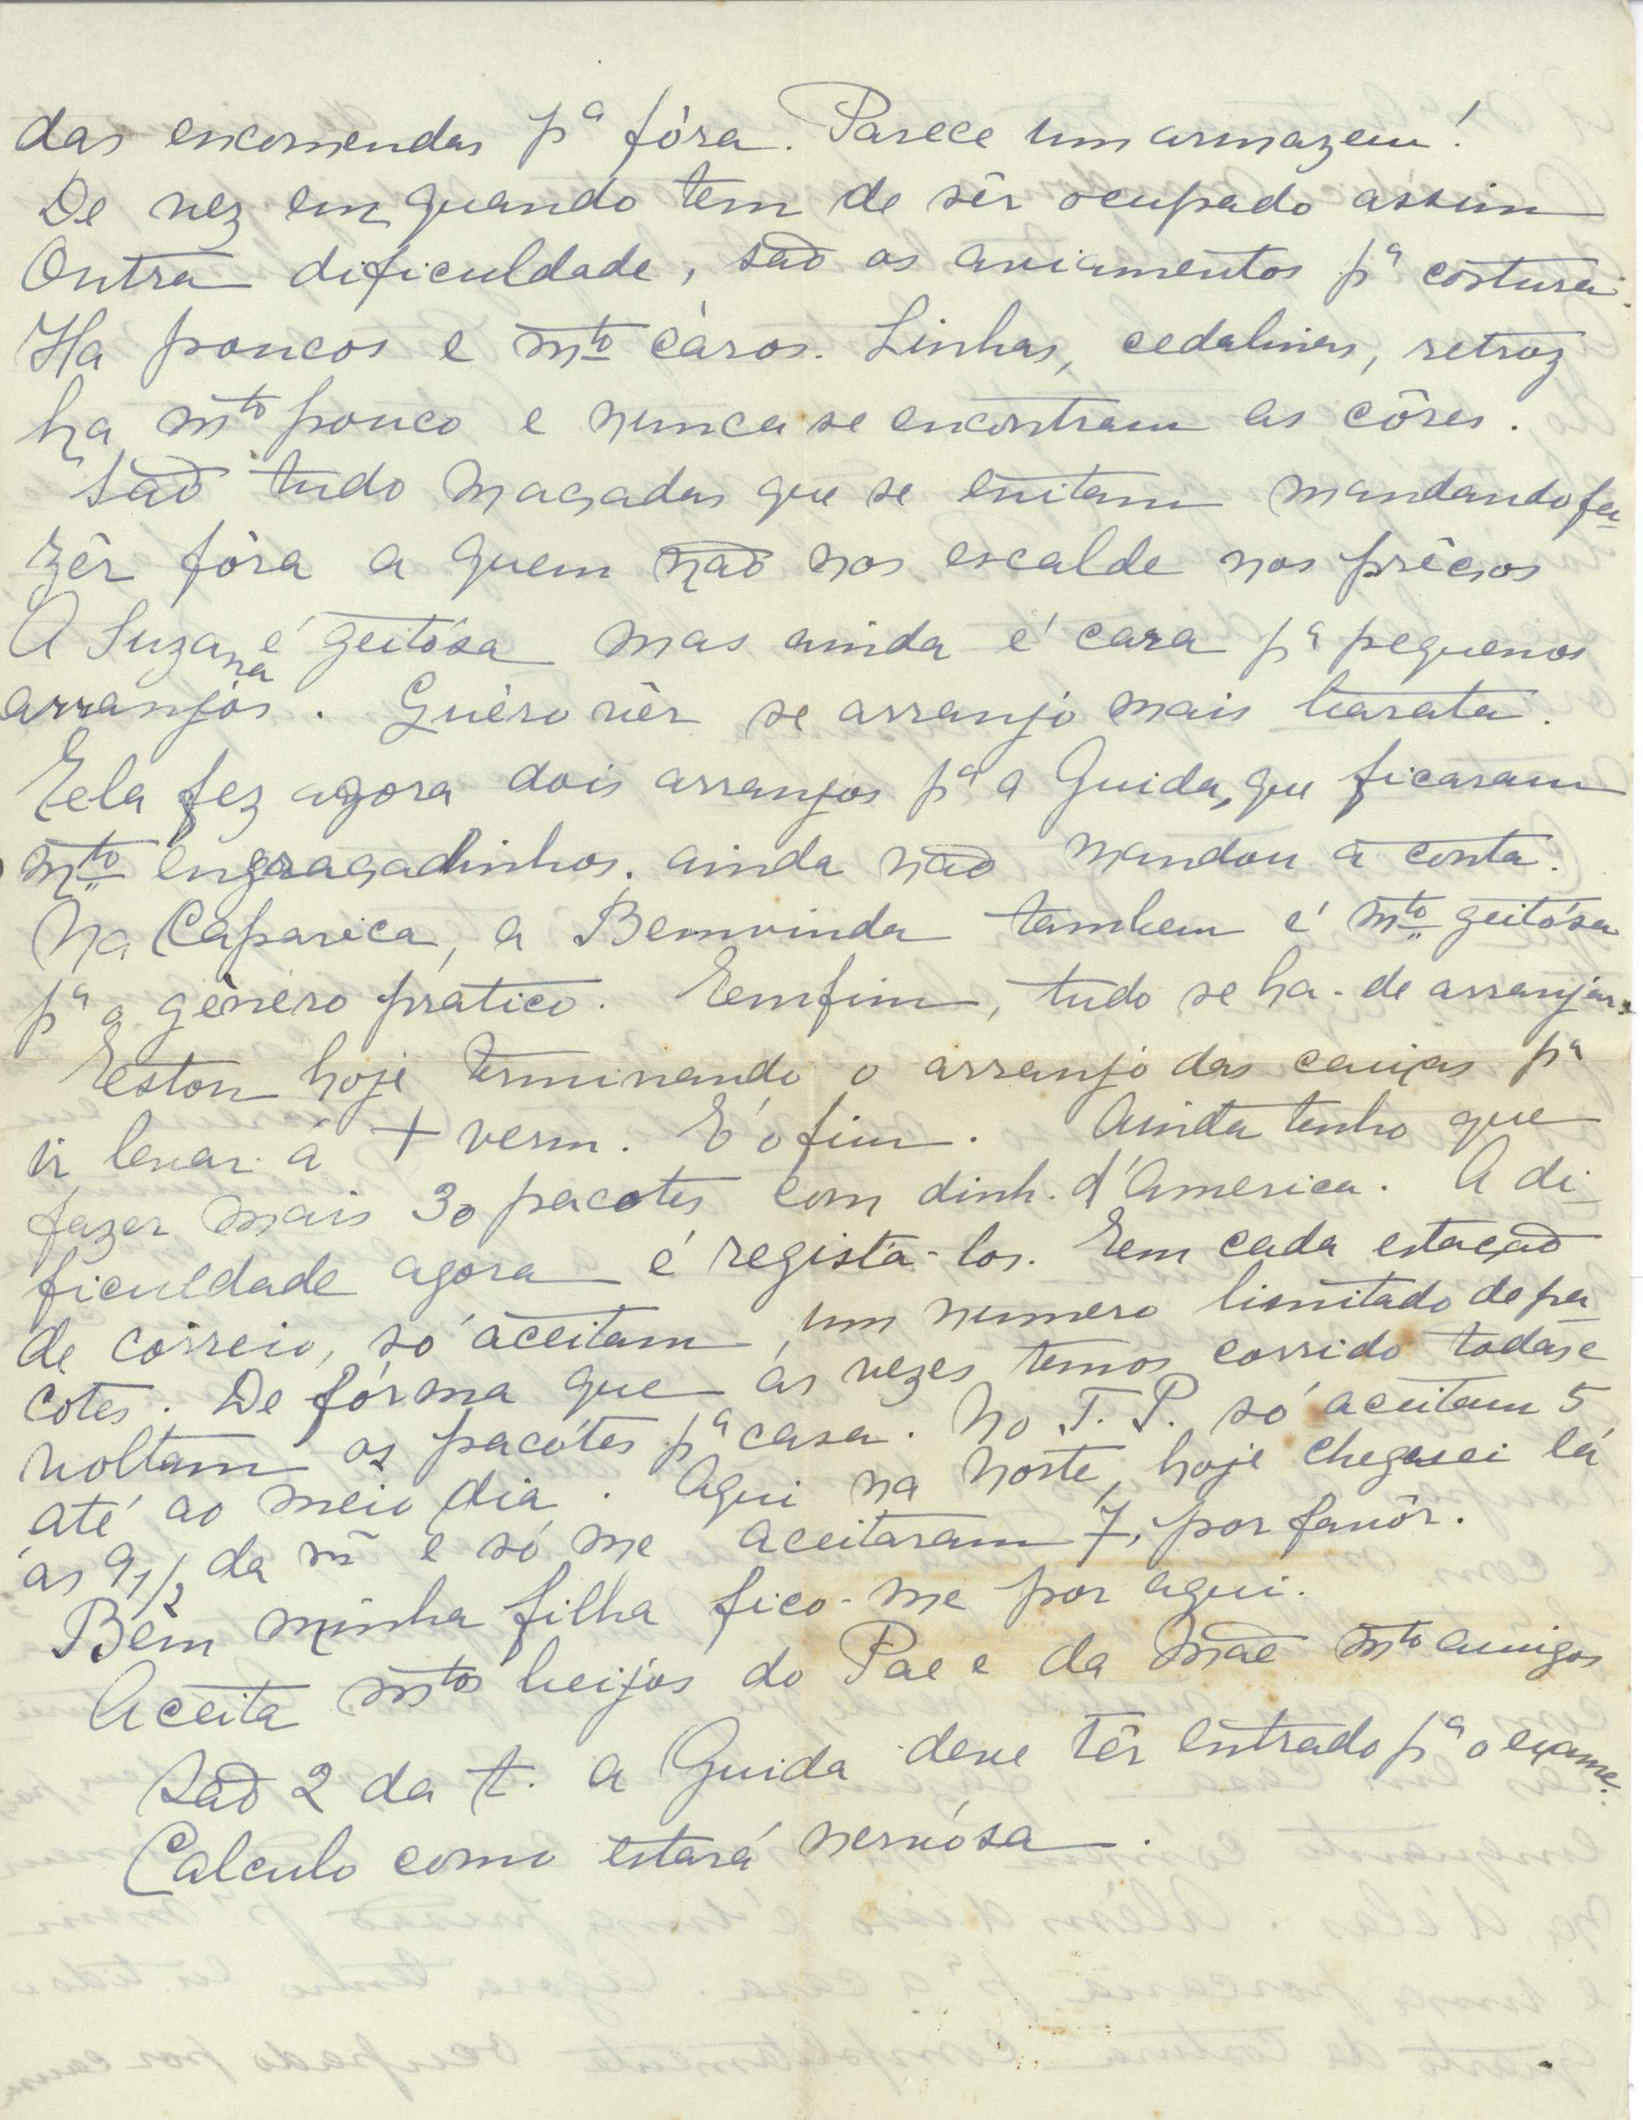 das encomendas pª fóra. Parece um armazem!
De vez em quando tem de sêr ocupado assim
Outra dificuldade, são os aviamentos pª costura.
Ha poucos e mto cáros. Linhas, cedalinas, retroz
ha mto pouco e nunca se encontram as côres.
São tudo maçadas que se evitam mandando fa-
zêr fóra a quem não nos escalde nos prêços
A Suzana é geitósa mas ainda é cara pª pequenos
arranjos. Quéro vêr se arranjo mais barata.
Ela fez agora dois arranjos pª a Guida, que ficaram
mto engraçadinhos. ainda não mandou a conta.
Na Caparica, a Bemvinda tambem é mto geitósa
pª o género prático. Emfim, tudo se ha-de arranjar.
Estou hoje terminando o arranjo das caixas pª
ir levar á + verm. E' o fim. Ainda tenho que
fazer mais 30 pacotes com dinh. d'America. A di-
ficuldade agora é regista-los. Em cada estação
de correio, só aceitam um numero limitado de pa-
cotes. De fórma que ás vezes temos corrido todas e
voltam os pacótes pª casa. No T. P. só aceitam 5
até ao meio dia. Aqui na Norte, hoje cheguei lá
ás 9 1/2 da m̃ e só me aceitaram 7, por favôr.
Bem minha filha fico-me por aqui.
Aceita mtos beijos do Pae e da Mãe mto amigos
São 2 da t. a Guida deve têr entrado pª o exame.
Calculo como estará nervósa.